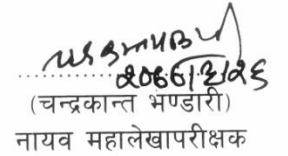 २०६६।३।२६
(चन्द्रकान्त भण्डारी)
नायव महालेखापरीक्षक